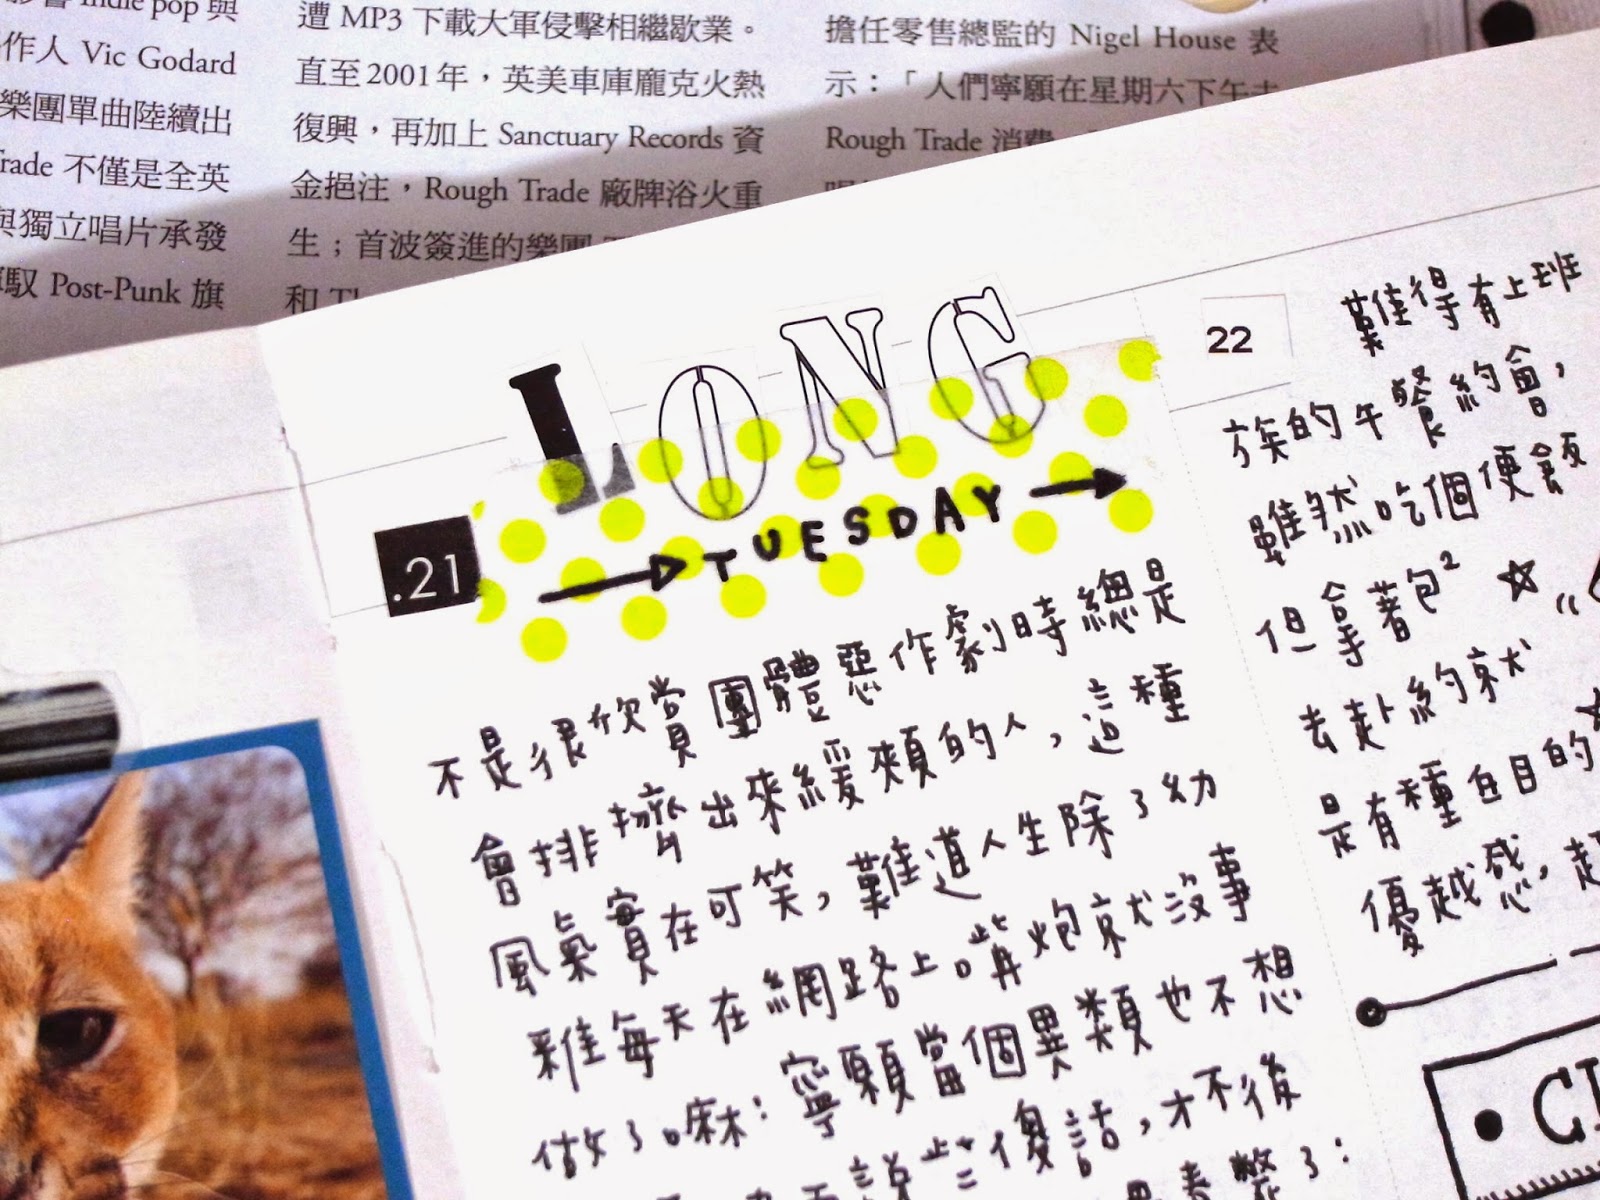 Indie pop 與
作人 Vic Godard
樂團單曲陸續出
Trade 不僅是全英
與獨立唱片承發
馭 Post-Punk 旗
遭 MP3 下載大軍侵擊相繼歇業。
直至2001年，英美車庫龐克火熱
復興，再加上 Sanctuary Records 資
金挹注，Rough Trade 廠牌浴火重
生；首波簽進的樂團
和
擔任零售總監的 Nigel House 表
示：「人們寧願在星期六下午去
Rough Trade 消費
LONG
.21
TUESDAY
不是很欣賞團體惡作劇時總是
會排擠出來緩頰的人，這種
風氣實在可笑，難道人生除了幼
稚每天在網路上嘴炮就沒事
做了嘛：寧願當個異類也不想
說些傻話，才不後
了：
22
難得有上班
族的午餐約會，
雖然吃個便飯
但拿著包²
去赴約就
是有種在目的
優越感，超